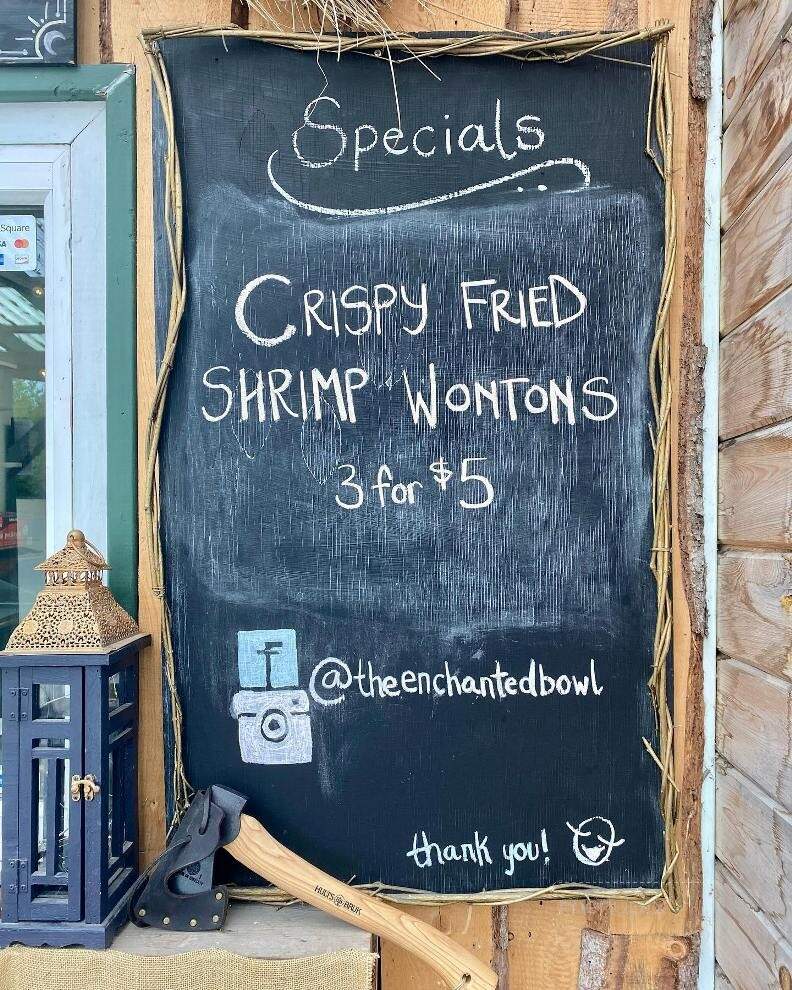 Specials
Square
CRISPY FRIED
SHRIMP WONTONS
3 for $5
f
@theenchantedbowl
thank you!
HULTS BRUK